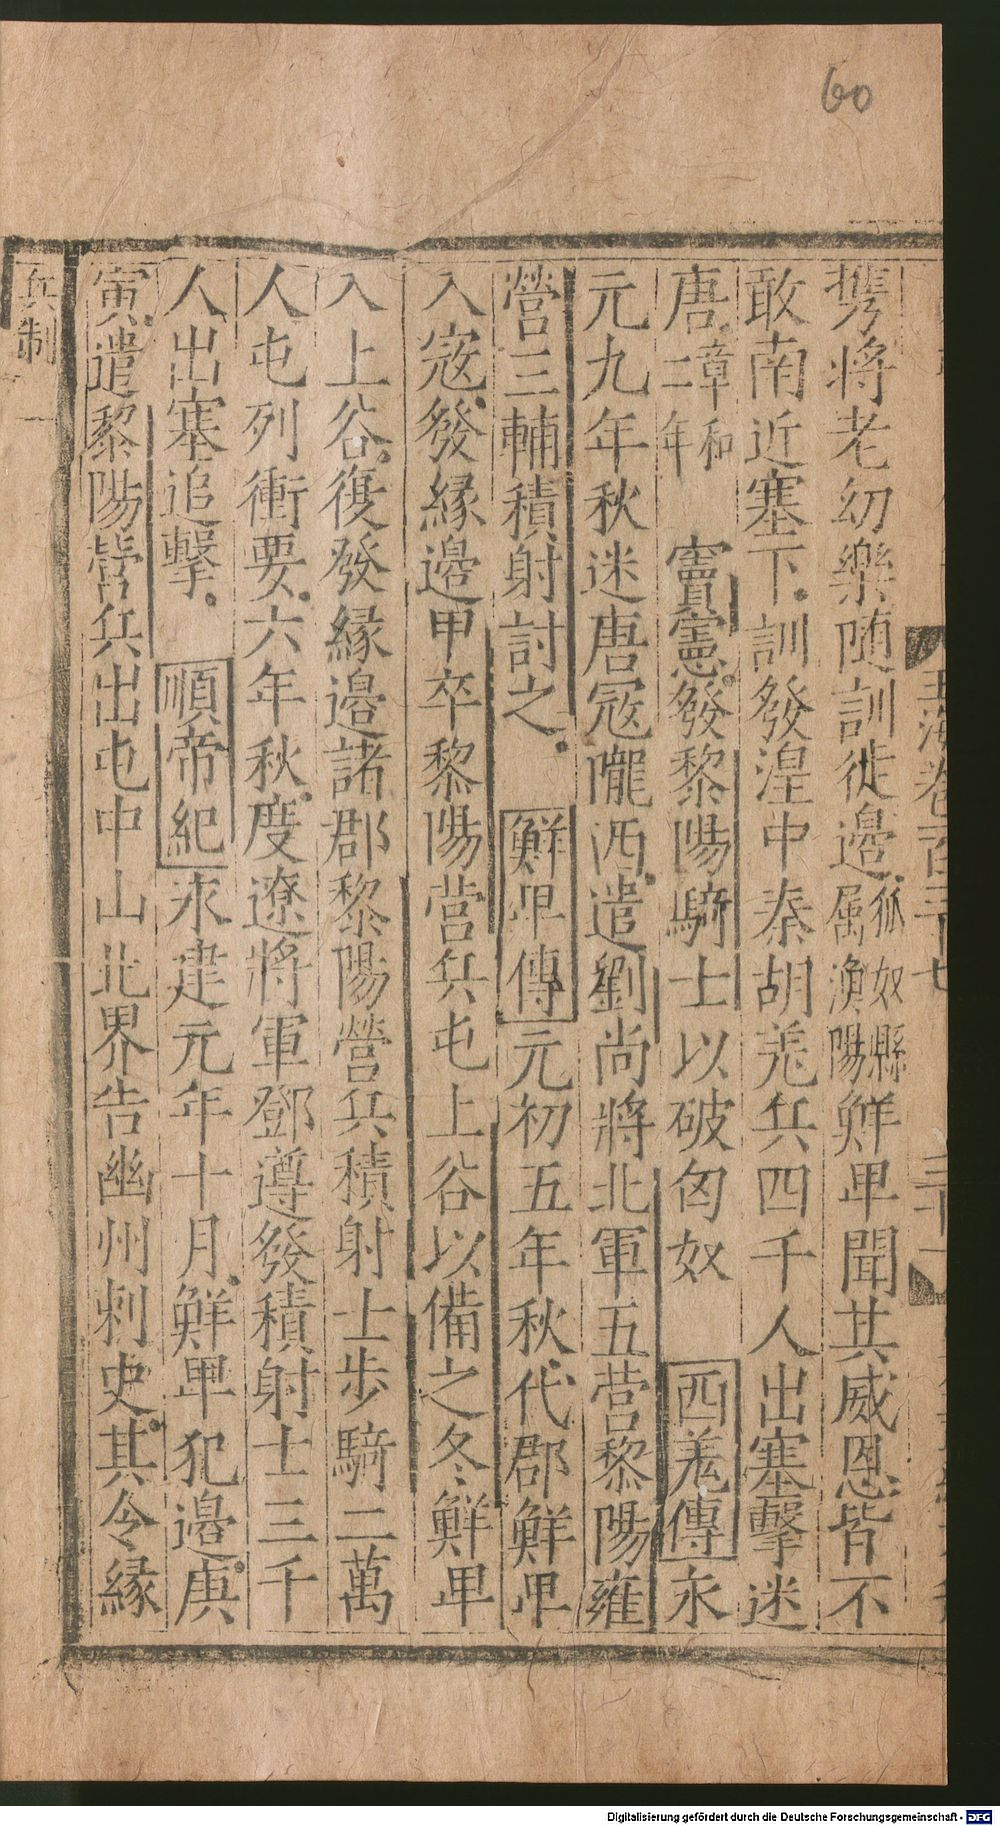 60
玉海卷百三十七
三十一
携將老幼樂随訓徙邊狐奴縣属漁陽鮮卑聞其威恩皆不
敢南近塞下訓發湟中秦胡羌兵四千人出塞擊迷
唐章和二年　竇憲發黎陽騎士以破匈奴　西羌傳永
元九年秋迷唐寇隴西遣劉尚將北軍五營黎陽雍
營三輔積射討之　鮮卑傳元初五年秋代郡鮮卑
入寇發緣邊甲卒黎陽營兵屯上谷以備之冬鮮卑
入上谷復發緣邊諸郡黎陽營兵積射士步騎二萬
人屯列衝要六年秋度遼將軍鄧遵發積射士三千
人出塞追擊　順帝紀永建元年十月鮮卑犯邊庚
寅遣黎陽營兵出屯中山北界告幽州刺史其令緣
兵制　一
Digitalisierung gefördert durch die Deutsche Forschungsgemeinschaft - DFG